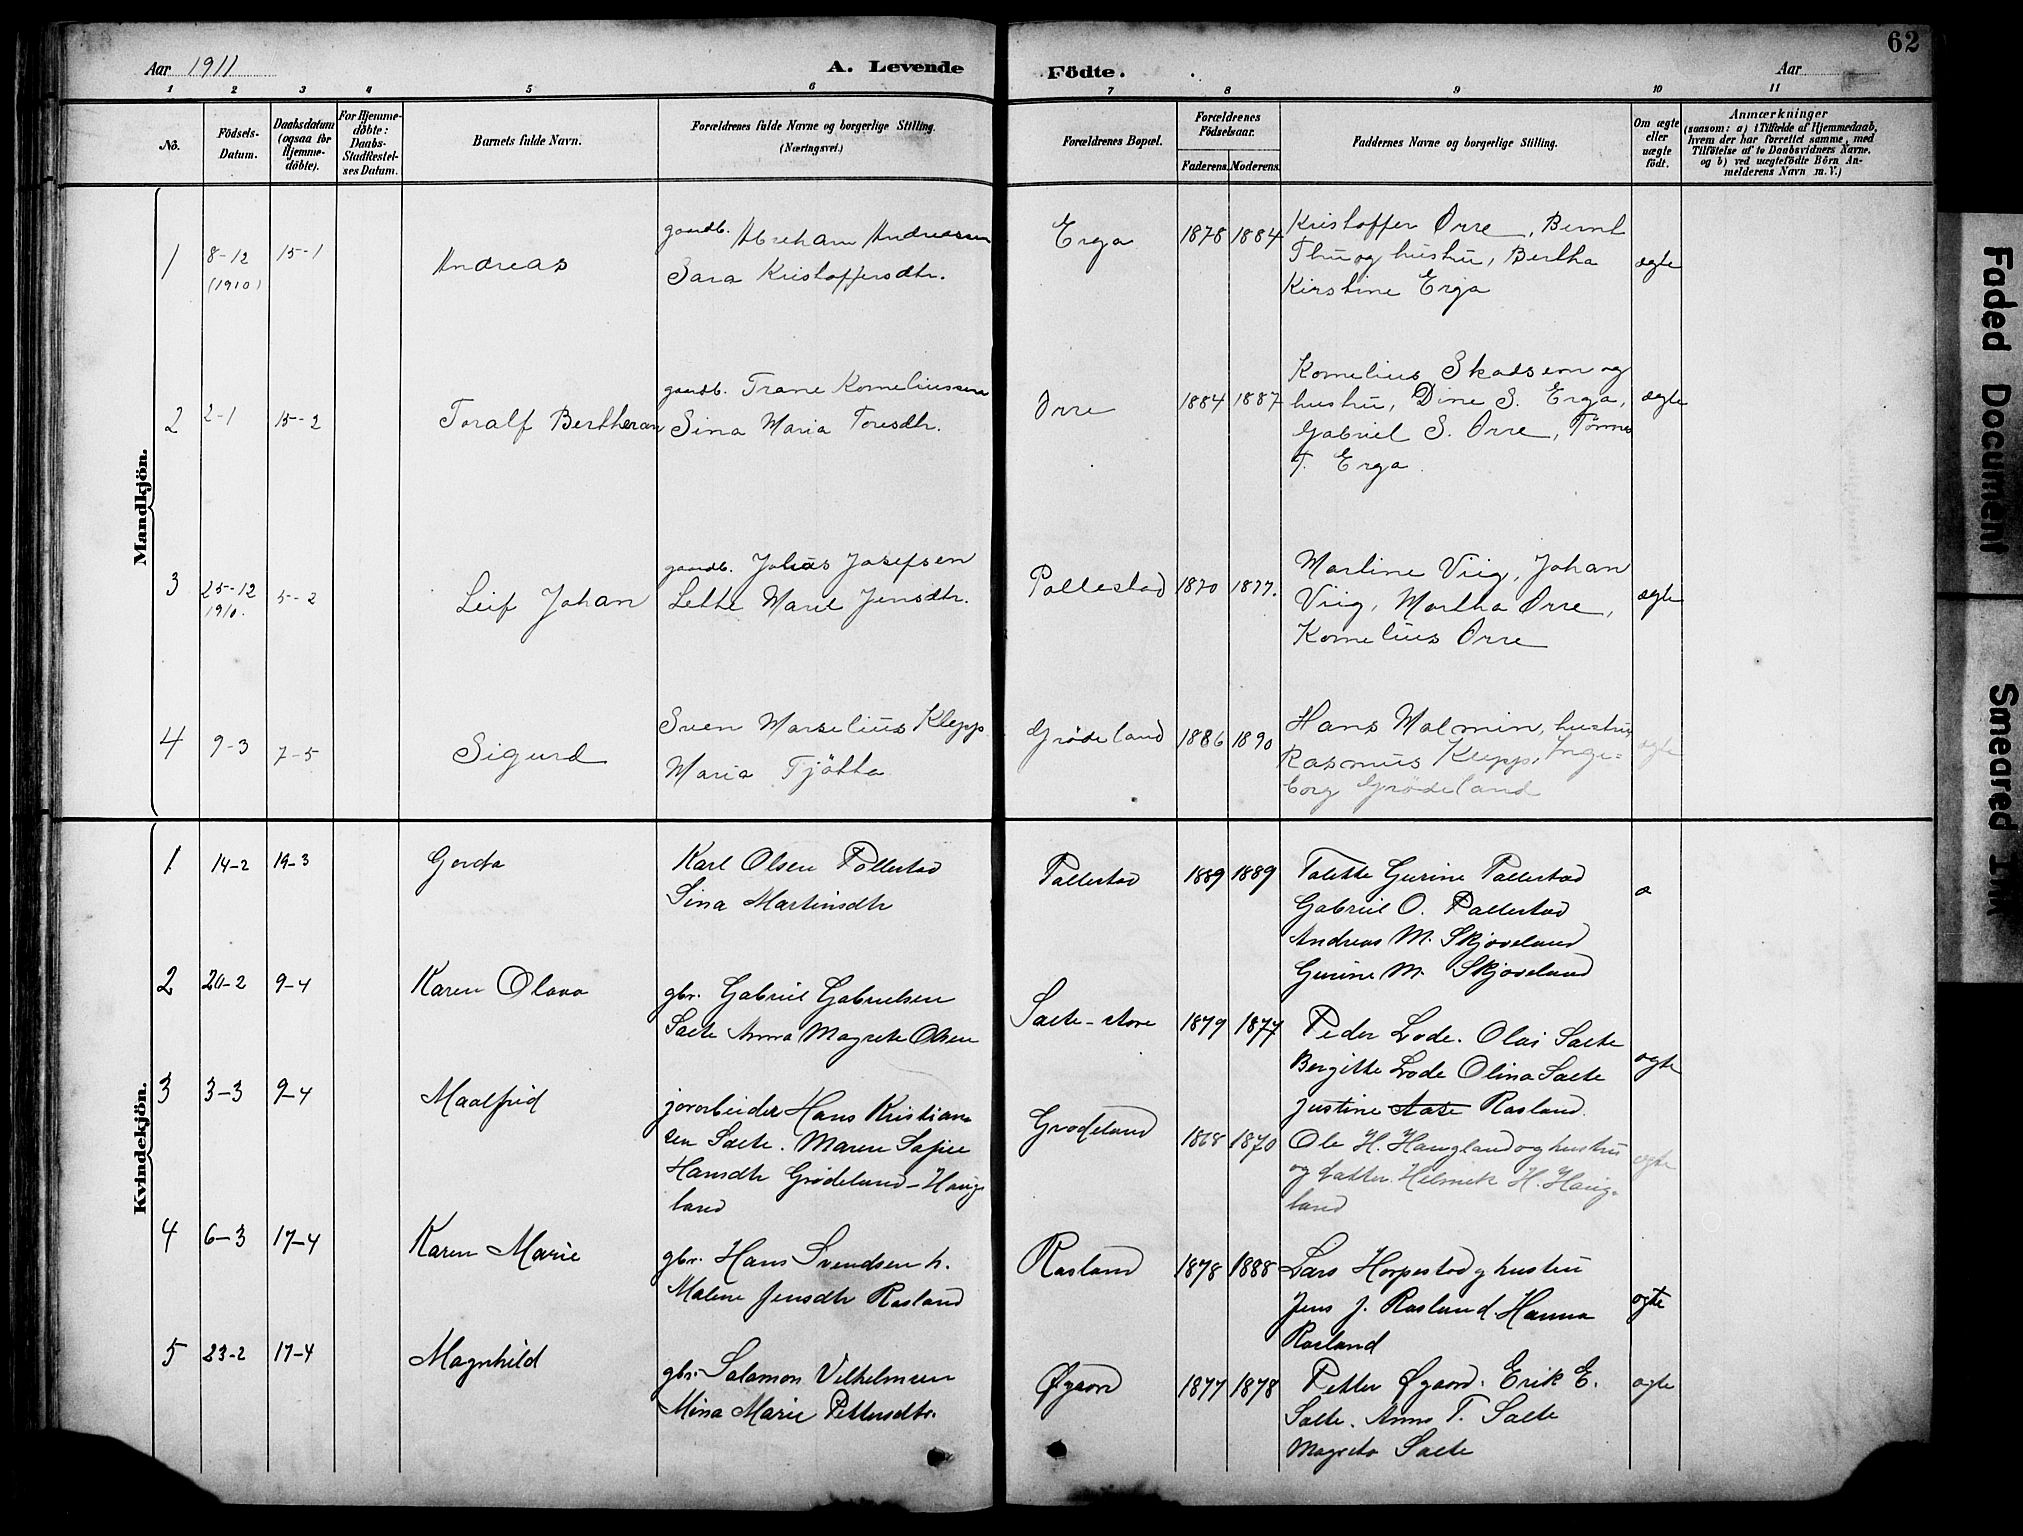 62
Aar 1911
A. Levende Födte.
Aar
1 2 3 4 5 6 7 8 9 10 11
No.
Födsels-Datum.
Daabsdatum (ogsaa for Hjemme-döbte).
For Hjemme-döbte: Daabs-Stadfæstel-ses Datum.
Barnets fulde Navn.
Forældrenes fulde Navne og borgerlige Stilling.
(Næringsvei.)
Forældrenes Bopæl.
Forældrenes Födselsaar.
Faderens. Moderens.
Faddernes Navne og borgerlige Stilling.
Om ægte eller uægte födt.
Anmærkninger
(saasom: a) i Tilfælde af Hjemmedaab, hvem der har forrettet samme, med Tilföielse af to Daabsvidners Navne. og b) ved uægtefödte Börn An-melderens Navn m. V.)
Mandkjön.
1 8-12 (1910) 15-1 Andreas
gaardb. Abraham Andreassen
Sara Kristoffersdtr.
Erga 1878 1884
Kristoffer Orre, Bernt
Thu og hustru, Bertha
Kirstine Erga
ægte
2 2-1 15-2 Toralf Bertheran
gaardb. Trane Korneliussen
Sina Maria Toresdtr.
Orre 1884 1887
Kornelius Skadsem og
hustru, Dine S. Erga,
Gabriel S. Orre, Tønnes
T. Erga.
ægte
3 25-12 1910. 5-2 Leif Johan
gaardb. Julius Josefsen
Lette Marie Jensdtr.
Pollestad 1870 1877.
Martine Viig, Johan
Viig, Martha Orre,
Kornelius Orre
ægte
4 9-3 7-5 Sigurd
Sven Marselius Klepp
Maria Tjøtta
Grødeland 1886 1890
Hans Malmin, hustru
Rasmus Klepp, Inge-
borg Grødeland
ægte
Kvindekjön.
1 14-2 19-3 Gerda
Karl Olsen Pollestad
Sina Martinsdtr
Pollestad 1889 1889
Talette Gurine Pollestad
Gabriel O. Pollestad
Andreas M. Skjæveland
Gurine M. Skjæveland
2 20-2 9-4 Karen Olava
gbr. Gabriel Gabrielsen
Salte Anna Magrete Olsen
Salte-store 1879 1877
Peder Lode. Olai Salte
Bergitte Lode Olina Salte
Justine Aase Rasland.
ægte
3 3-3 9-4 Maalfrid
jorarbeider Hans Kristian-
sen Salte. Maren Sofie
Hansdtr Grødeland-Haug-
land
Grødeland 1868 1870
Ole H. Haugland og hustru
og datter. H. Haug-
land
ægte
4 6-3 17-4 Karen Marie
gbr. Hans Svendsen h.
Malene Jensdtr Rasland
Rasland 1878 1888
Lars Horpestad og hustru
Jens J. Rasland. Hanna
Rasland
ægte
5 23-2 17-4 Magnhild
gbr. Salamon Vilhelmsen
Mina Marie Pettersdtr.
Øgaard 1877 1878
Petter Øgaard. Erik E.
Salte. Anna T. Salte
Magreta Salte
ægte
Faded Document
Smeared Ink